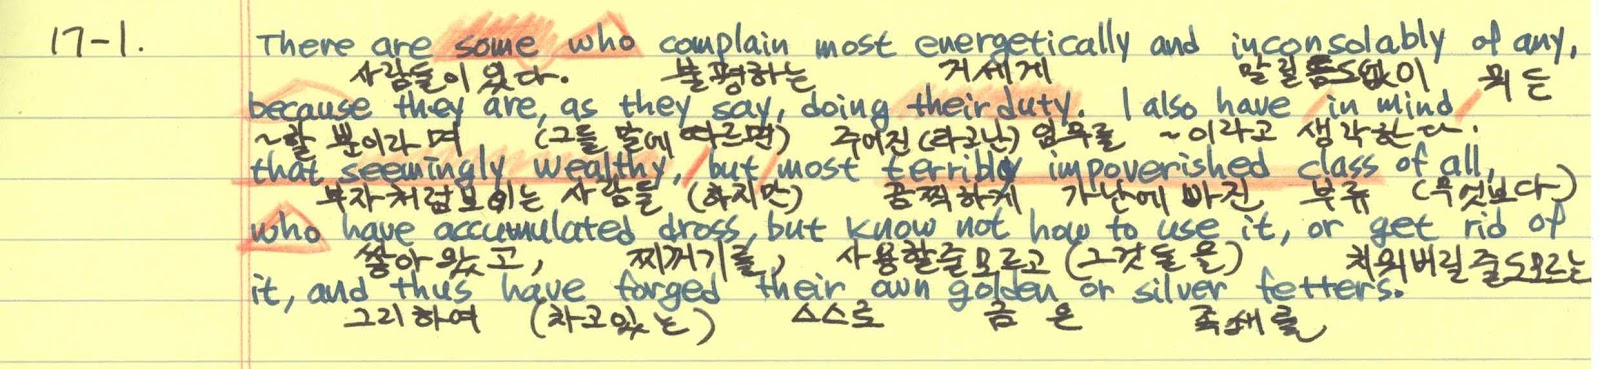 17-1. There are some who complain most energetically and inconsolably of any,
사람들이 있다. 불평하는 거세게 말릴틈도없이 뭐든
because they are, as they say, doing their duty. I also have in mind
~할 뿐이라며 (그들 말에 따르면) 주어진 (타고난) 임무를 ~이라고 생각한다.
that seemingly wealthy, but most terribly impoverished class of all,
부자처럼보이는 사람들 (하지만) 끔찍하게 가난에 빠진 부류 (무엇보다)
who have accumulated dross, but know not how to use it, or get rid of
쌓아 왔고, 찌꺼기를, 사용할줄모르고 (그것들을) 치워버릴줄도모르는
it, and thus have forged their own golden or silver fetters.
그리하여 (차고있는) 스스로 금 은 족쇄를